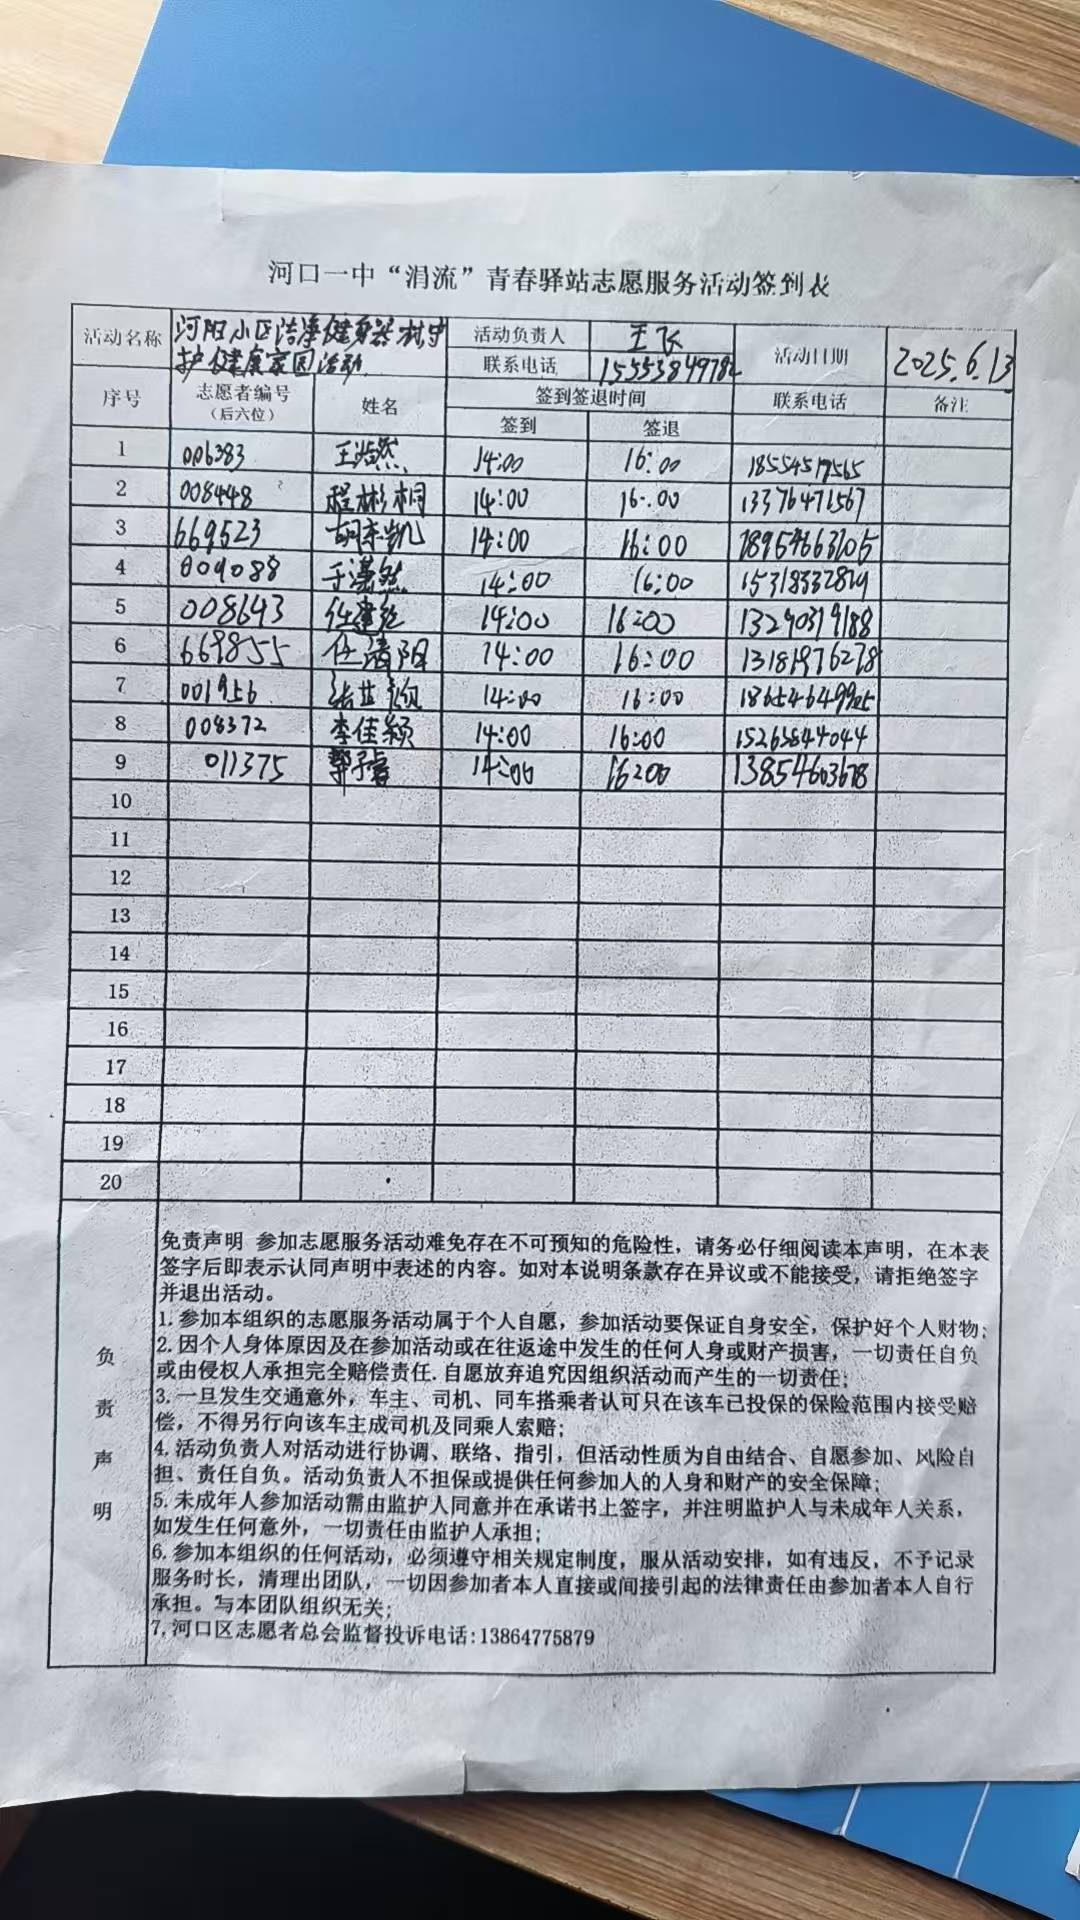 河口一中“涓流”青春驿站志愿服务活动签到表
活动名称 河阳小区洁净健身器材守护健康家园活动 活动负责人 王飞 活动日期 2025.6.13
联系电话 15553849782
序号 志愿者编号（后六位） 姓名 签到签退时间 联系电话 备注
签到 签退
1 006383 王浩然 14:00 16:00 18554517565
2 008448 程彬桐 14:00 16:00 13376471567
3 669523 胡宗凯 14:00 16:00 18954663105
4 009088 于潇然 14:00 16:00
5 008643 14:00 16:00 13290319188
6 669855 任清阳 14:00 16:00 13181976278
7 001956 14:00 16:00
8 008372 李佳颖 14:00 16:00 15263844044
9 011375 14:00 16:00 13854603678
10
11
12
13
14
15
16
17
18
19
20
负责声明
免责声明 参加志愿服务活动难免存在不可预知的危险性，请务必仔细阅读本声明，在本表
签字后即表示认同声明中表述的内容。如对本说明条款存在异议或不能接受，请拒绝签字
并退出活动。
1.参加本组织的志愿服务活动属于个人自愿，参加活动要保证自身安全，保护好个人财物；
2.因个人身体原因及在参加活动或在往返途中发生的任何人身或财产损害，一切责任自负
或由侵权人承担完全赔偿责任.自愿放弃追究因组织活动而产生的一切责任；
3.一旦发生交通意外，车主、司机、同车搭乘者认可只在该车已投保的保险范围内接受赔
偿，不得另行向该车主成司机及同乘人索赔；
4.活动负责人对活动进行协调、联络、指引，但活动性质为自由结合、自愿参加、风险自
担、责任自负。活动负责人不担保或提供任何参加人的人身和财产的安全保障；
5.未成年人参加活动需由监护人同意并在承诺书上签字，并注明监护人与未成年人关系，
如发生任何意外，一切责任由监护人承担；
6.参加本组织的任何活动，必须遵守相关规定制度，服从活动安排，如有违反，不予记录
服务时长，清理出团队，一切因参加者本人直接或间接引起的法律责任由参加者本人自行
承担。与本团队组织无关；
7,河口区志愿者总会监督投诉电话:13864775879